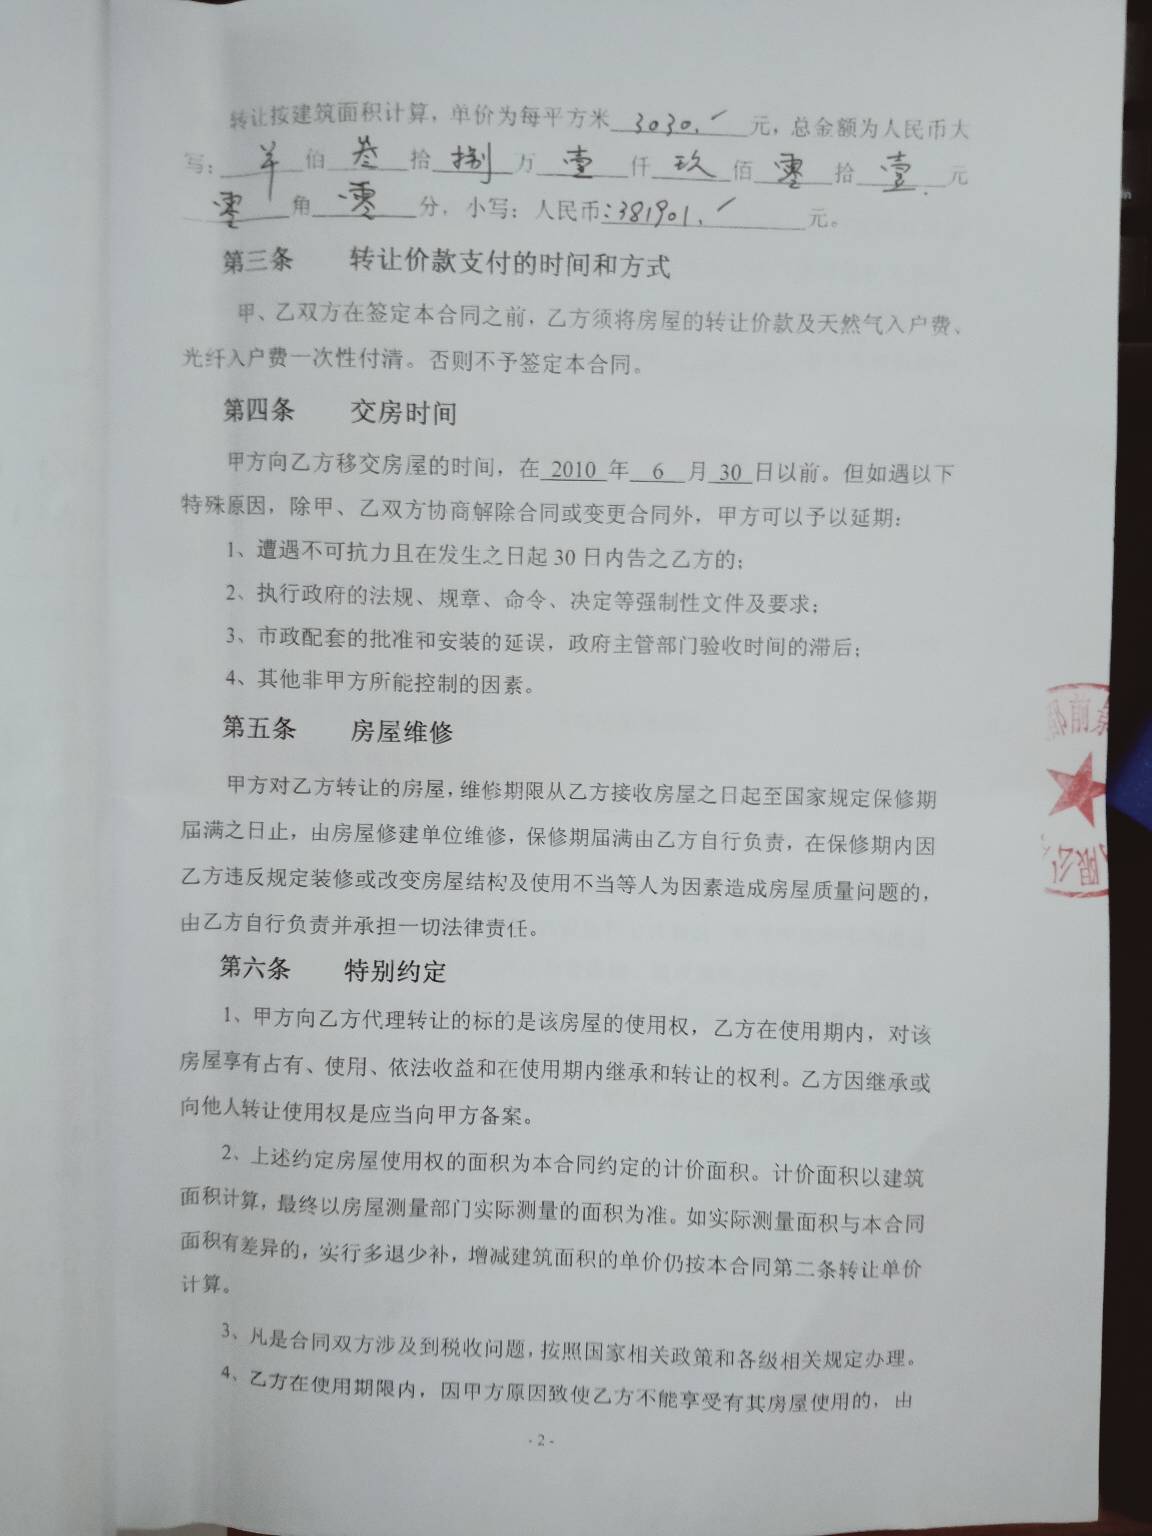 转让按建筑面积计算，单价为每平方米 3030. 元，总金额为人民币大
写： 羊 佰 叁 拾 捌 万 壹 仟 玖 佰 零 拾 壹 元
零 角 零 分，小写：人民币:381901. 元。
第三条 转让价款支付的时间和方式
甲、乙双方在签定本合同之前，乙方须将房屋的转让价款及天然气入户费、
光纤入户费一次性付清。否则不予签定本合同。
第四条 交房时间
甲方向乙方移交房屋的时间，在 2010 年 6 月 30 日以前。但如遇以下
特殊原因，除甲、乙双方协商解除合同或变更合同外，甲方可以予以延期：
1、遭遇不可抗力且在发生之日起 30 日内告之乙方的；
2、执行政府的法规、规章、命令、决定等强制性文件及要求；
3、市政配套的批准和安装的延误，政府主管部门验收时间的滞后；
4、其他非甲方所能控制的因素。
第五条 房屋维修
甲方对乙方转让的房屋，维修期限从乙方接收房屋之日起至国家规定保修期
届满之日止，由房屋修建单位维修，保修期届满由乙方自行负责，在保修期内因
乙方违反规定装修或改变房屋结构及使用不当等人为因素造成房屋质量问题的，
由乙方自行负责并承担一切法律责任。
第六条 特别约定
1、甲方向乙方代理转让的标的是该房屋的使用权，乙方在使用期内，对该
房屋享有占有、使用、依法收益和在使用期内继承和转让的权利。乙方因继承或
向他人转让使用权是应当向甲方备案。
2、上述约定房屋使用权的面积为本合同约定的计价面积。计价面积以建筑
面积计算，最终以房屋测量部门实际测量的面积为准。如实际测量面积与本合同
面积有差异的，实行多退少补，增减建筑面积的单价仍按本合同第二条转让单价
计算。
3、凡是合同双方涉及到税收问题，按照国家相关政策和各级相关规定办理。
4、乙方在使用期限内，因甲方原因致使乙方不能享受有其房屋使用的，由
- 2 -